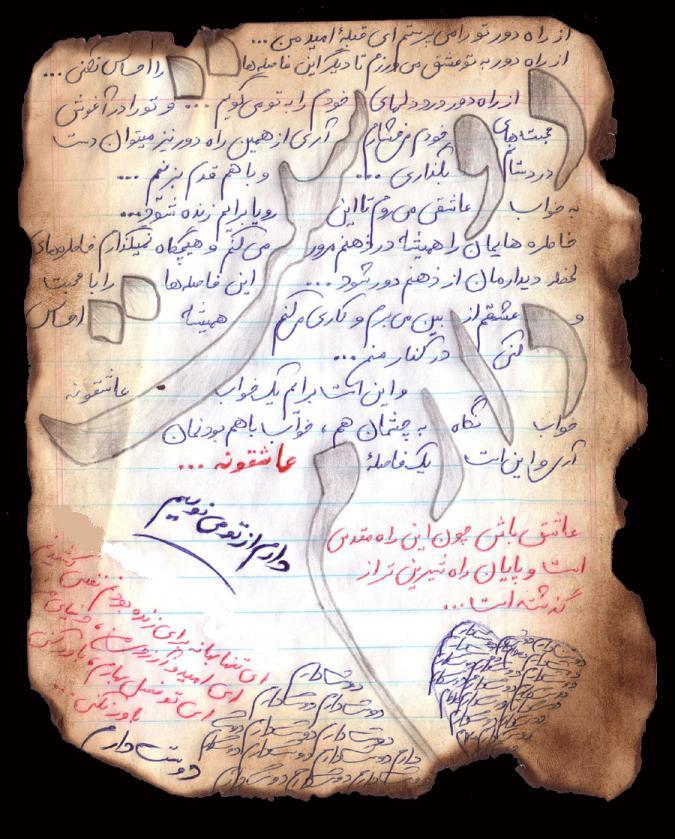 از راه دور تو را می پرستم ای قبلهٔ امید من ...
از راه دور به تو عشق می ورزم تا دیگر این فاصله ها را احساس نکنی ...
از راه دور درد دلهای خودم را به تو می گویم ... و تو را در آغوش
محبت های خودم می فشارم آری از همین راه دور نیز میتوان دست
در دستانم بگذاری ... و با هم قدم بزنیم ...
به خواب عاشقی می روم تا این رویا برایم زنده شود ...
خاطره هایمان را همیشه در ذهنم مرور می کنم و هیچگاه نمیگذارم خاطره های
لحظه دیدارمان از ذهنم دور شود ... این فاصله ها را با محبت
و عشقم از بین می برم و کاری می کنم همیشه احساس
کنی در کنار منم ...
و این است برایم یک خواب عاشقونه
خواب نگاه به چشمان هم ، خواب با هم بودنمان
آری و این است یک فاصلهٔ عاشقونه ...
دارم از تو می نویسم
عاشق باش چون این راه مقدس
است و پایان راه شیرین تر از
گذشته است ...
ای تنها بهانه برای زنده بودنم نفس کشیدنم
ای امید و آرزوی من ، دنیای من
ای تو فصل بهارم ، باور کنی
باور نکنی ...
دوستت دارم
دوستت دارم
دوستت دارم دوستت دارم
دوستت دارم دوستت دارم